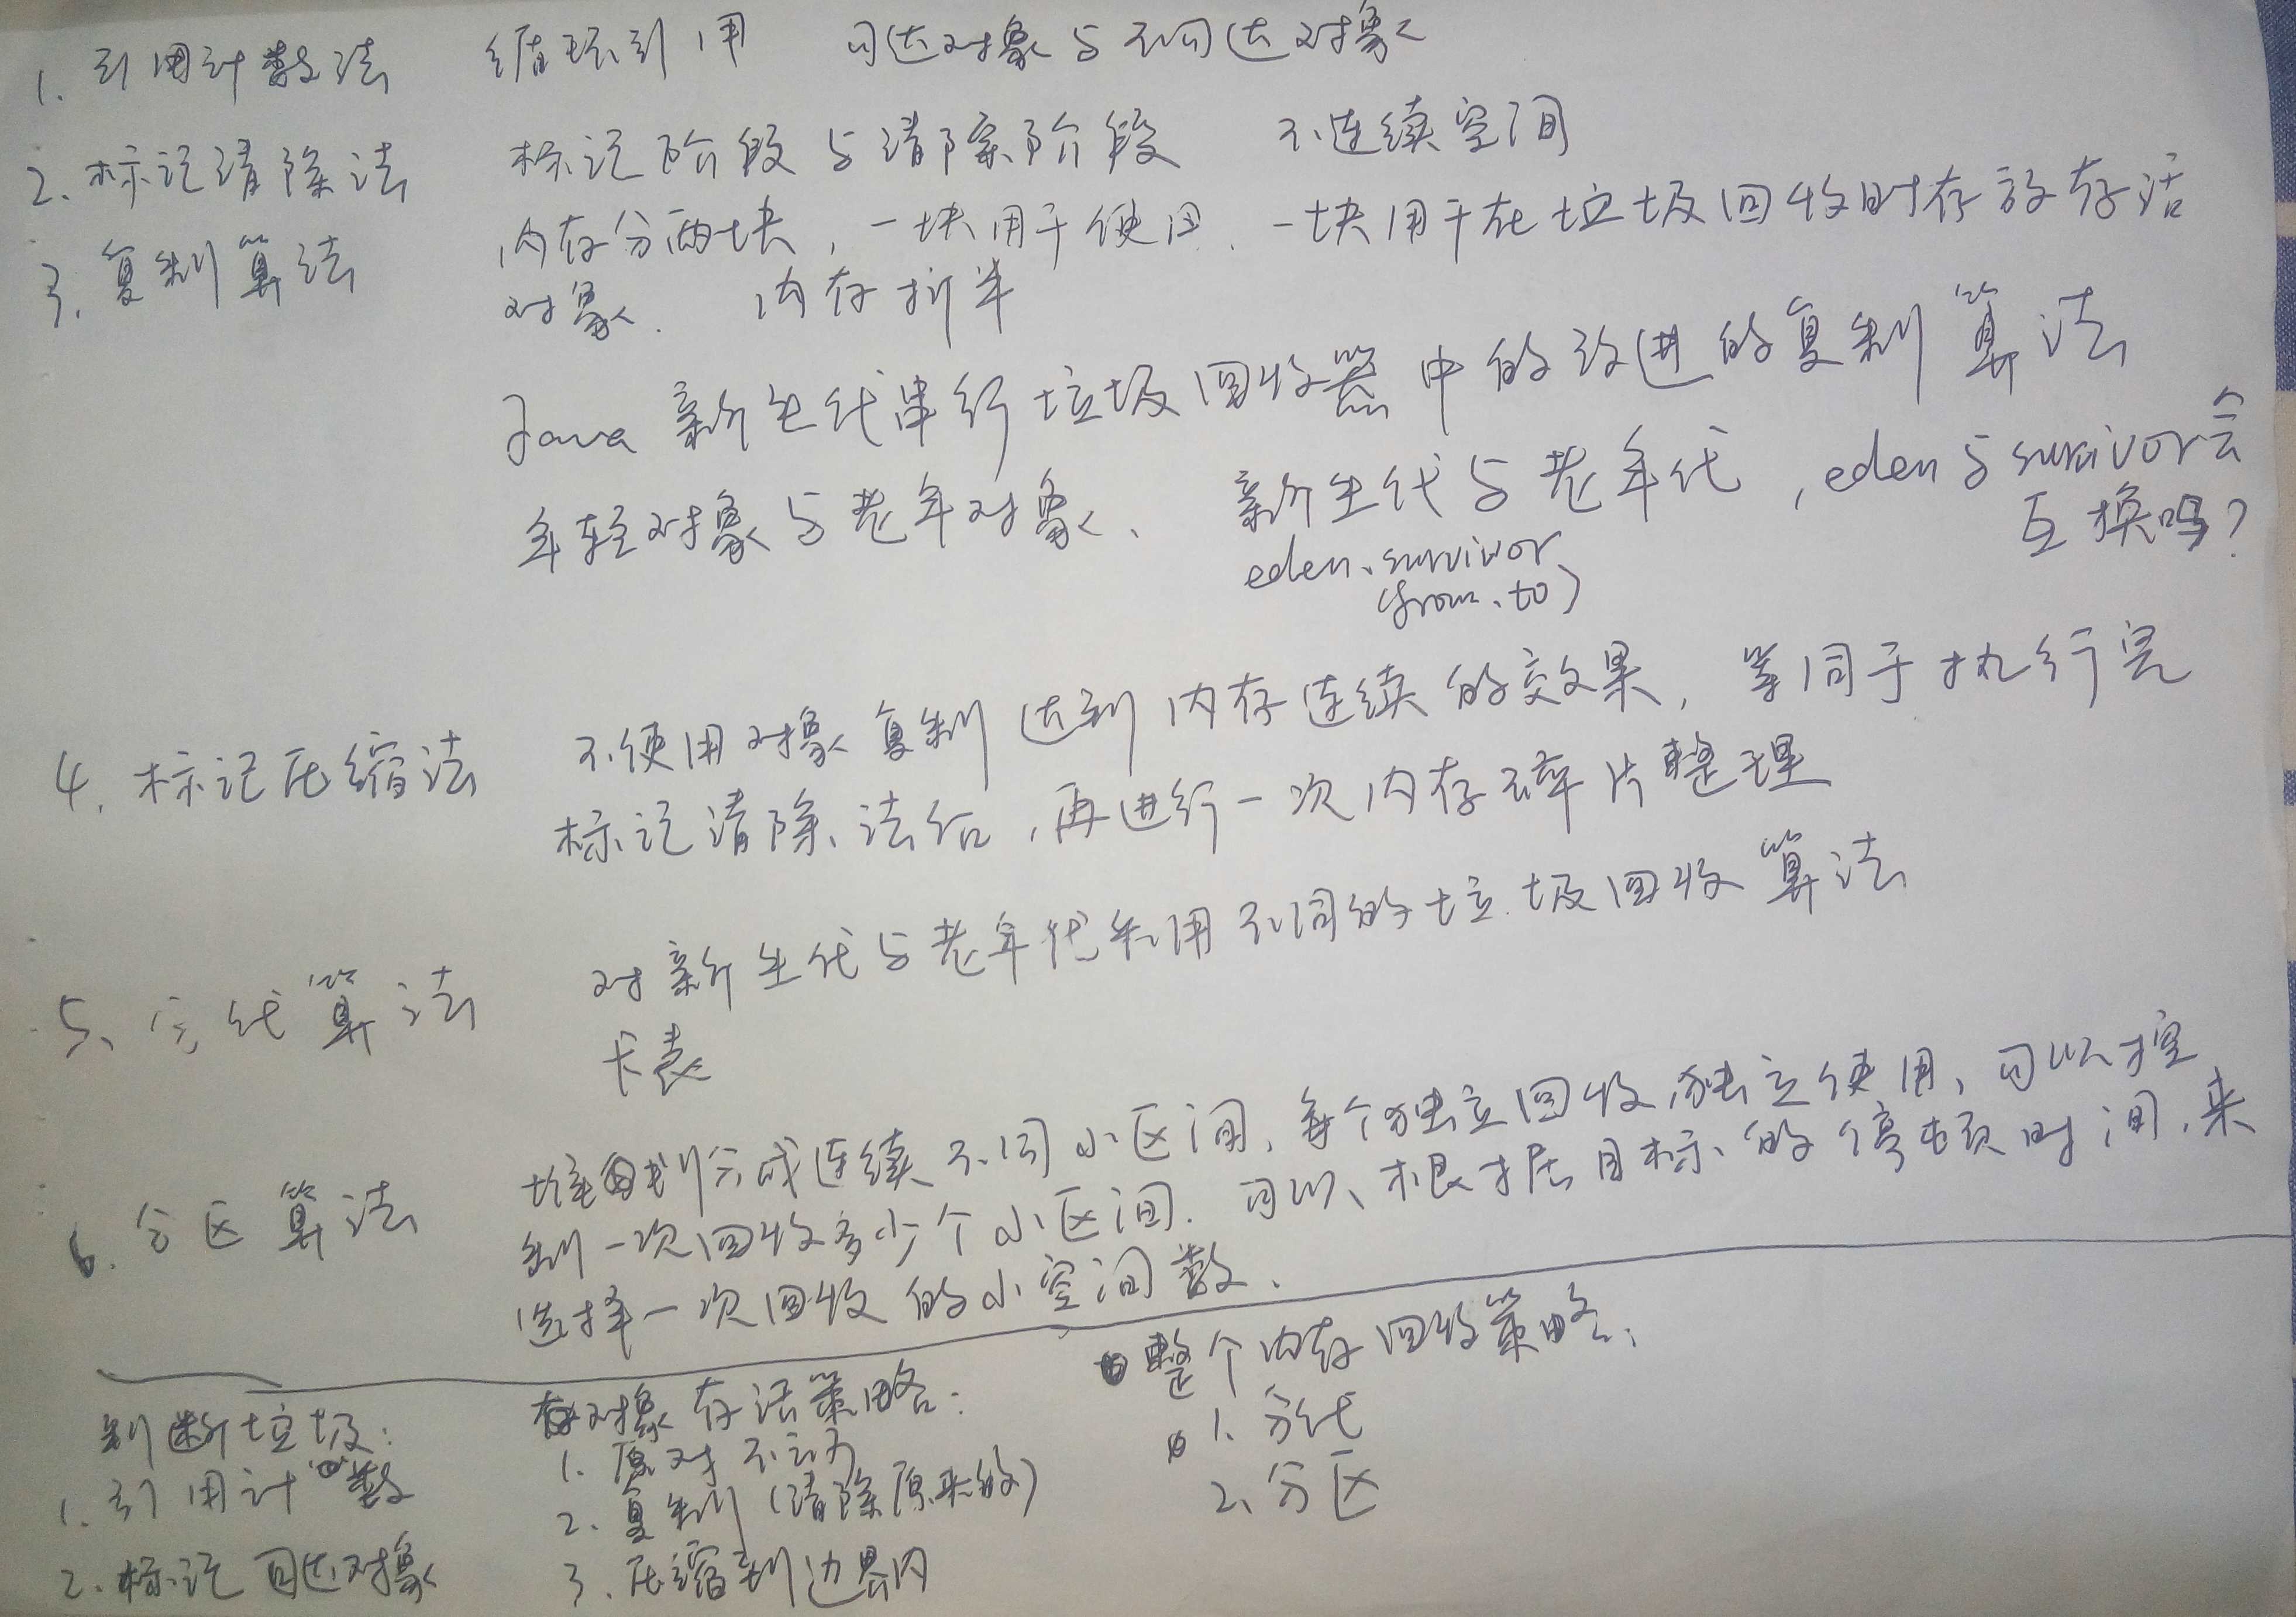 1. 引用计数法 循环引用 可达对象与不可达对象
2. 标记清除法 标记阶段与清除阶段 不连续空间
3. 复制算法 内存分两块，一块用于使用、一块用于在垃圾回收时存放存活
对象. 内存折半
Java 新生代串行垃圾回收器中的改进的复制算法
年轻对象与老年对象、 新生代与老年代，eden与survivor会
互换吗？
eden、survivor
(from、to)
4. 标记压缩法 不使用对象复制达到内存连续的效果，等同于执行完
标记清除法后，再进行一次内存碎片整理
5、分代算法 对新生代与老年代利用不同的垃圾回收算法
卡表
6. 分区算法 堆划分成连续不同小区间，每个独立回收，独立使用，可以控
制一次回收多少个小区间. 可以根据目标的停顿时间，来
选择一次回收的小空间数、
判断垃圾：
1. 引用计数
2. 标记可达对象
对象存活策略：
1. 原对不动
2. 复制（清除原来的）
3. 压缩到边界内
整个内存回收策略：
1. 分代
2、分区